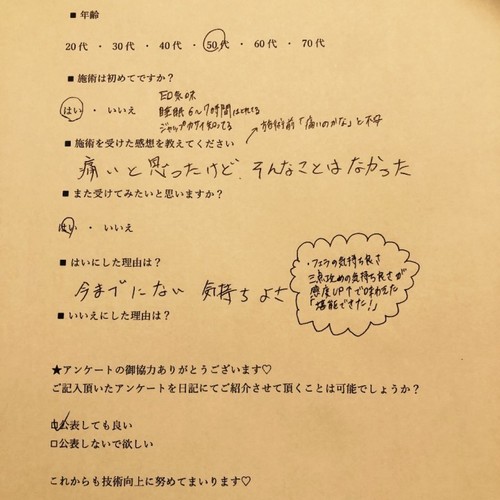 ■ 年齢
20代 ・ 30代 ・ 40代 ・ 50代 ・ 60代 ・ 70代
■ 施術は初めてですか?
はい ・ いいえ
睡眠 6〜7時間はとれてる
ジャップカサイ知ってる
→施術前「痛いのかな」と不安
■ 施術を受けた感想を教えてください
痛いと思ったけど、そんなことはなかった
■ また受けてみたいと思いますか?
はい ・ いいえ
■ はいにした理由は?
今までにない 気持ちよさ
・フェラの気持ち良さ
三点攻めの気持ち良さが
感度UP↑で味わえた
「堪能できた!」
■ いいえにした理由は?
★アンケートの御協力ありがとうございます♡
ご記入頂いたアンケートを日記にてご紹介させて頂くことは可能でしょうか?
☑公表しても良い
□公表しないで欲しい
これからも技術向上に努めてまいります♡